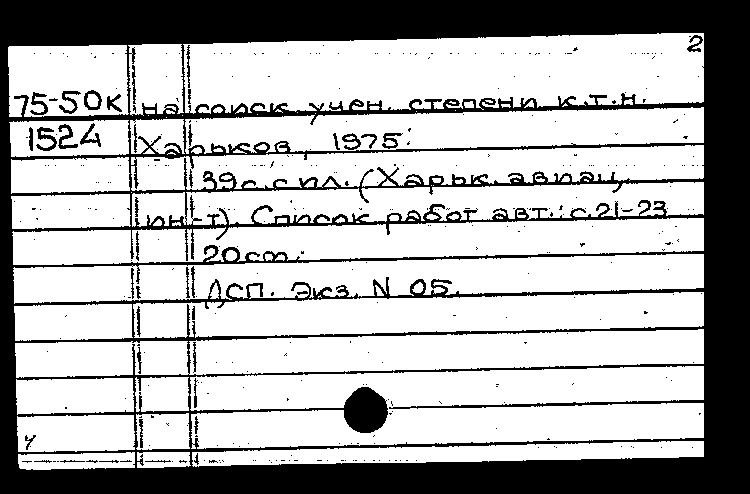 2
75-50к на соиск. учен. степени к.т.н.
1524 Харьков, 1975.
39с. с ил. (Харьк. авиац.
ин-т). Список работ авт.: с. 21-23
20см.
ДСП. Экз. N 05.